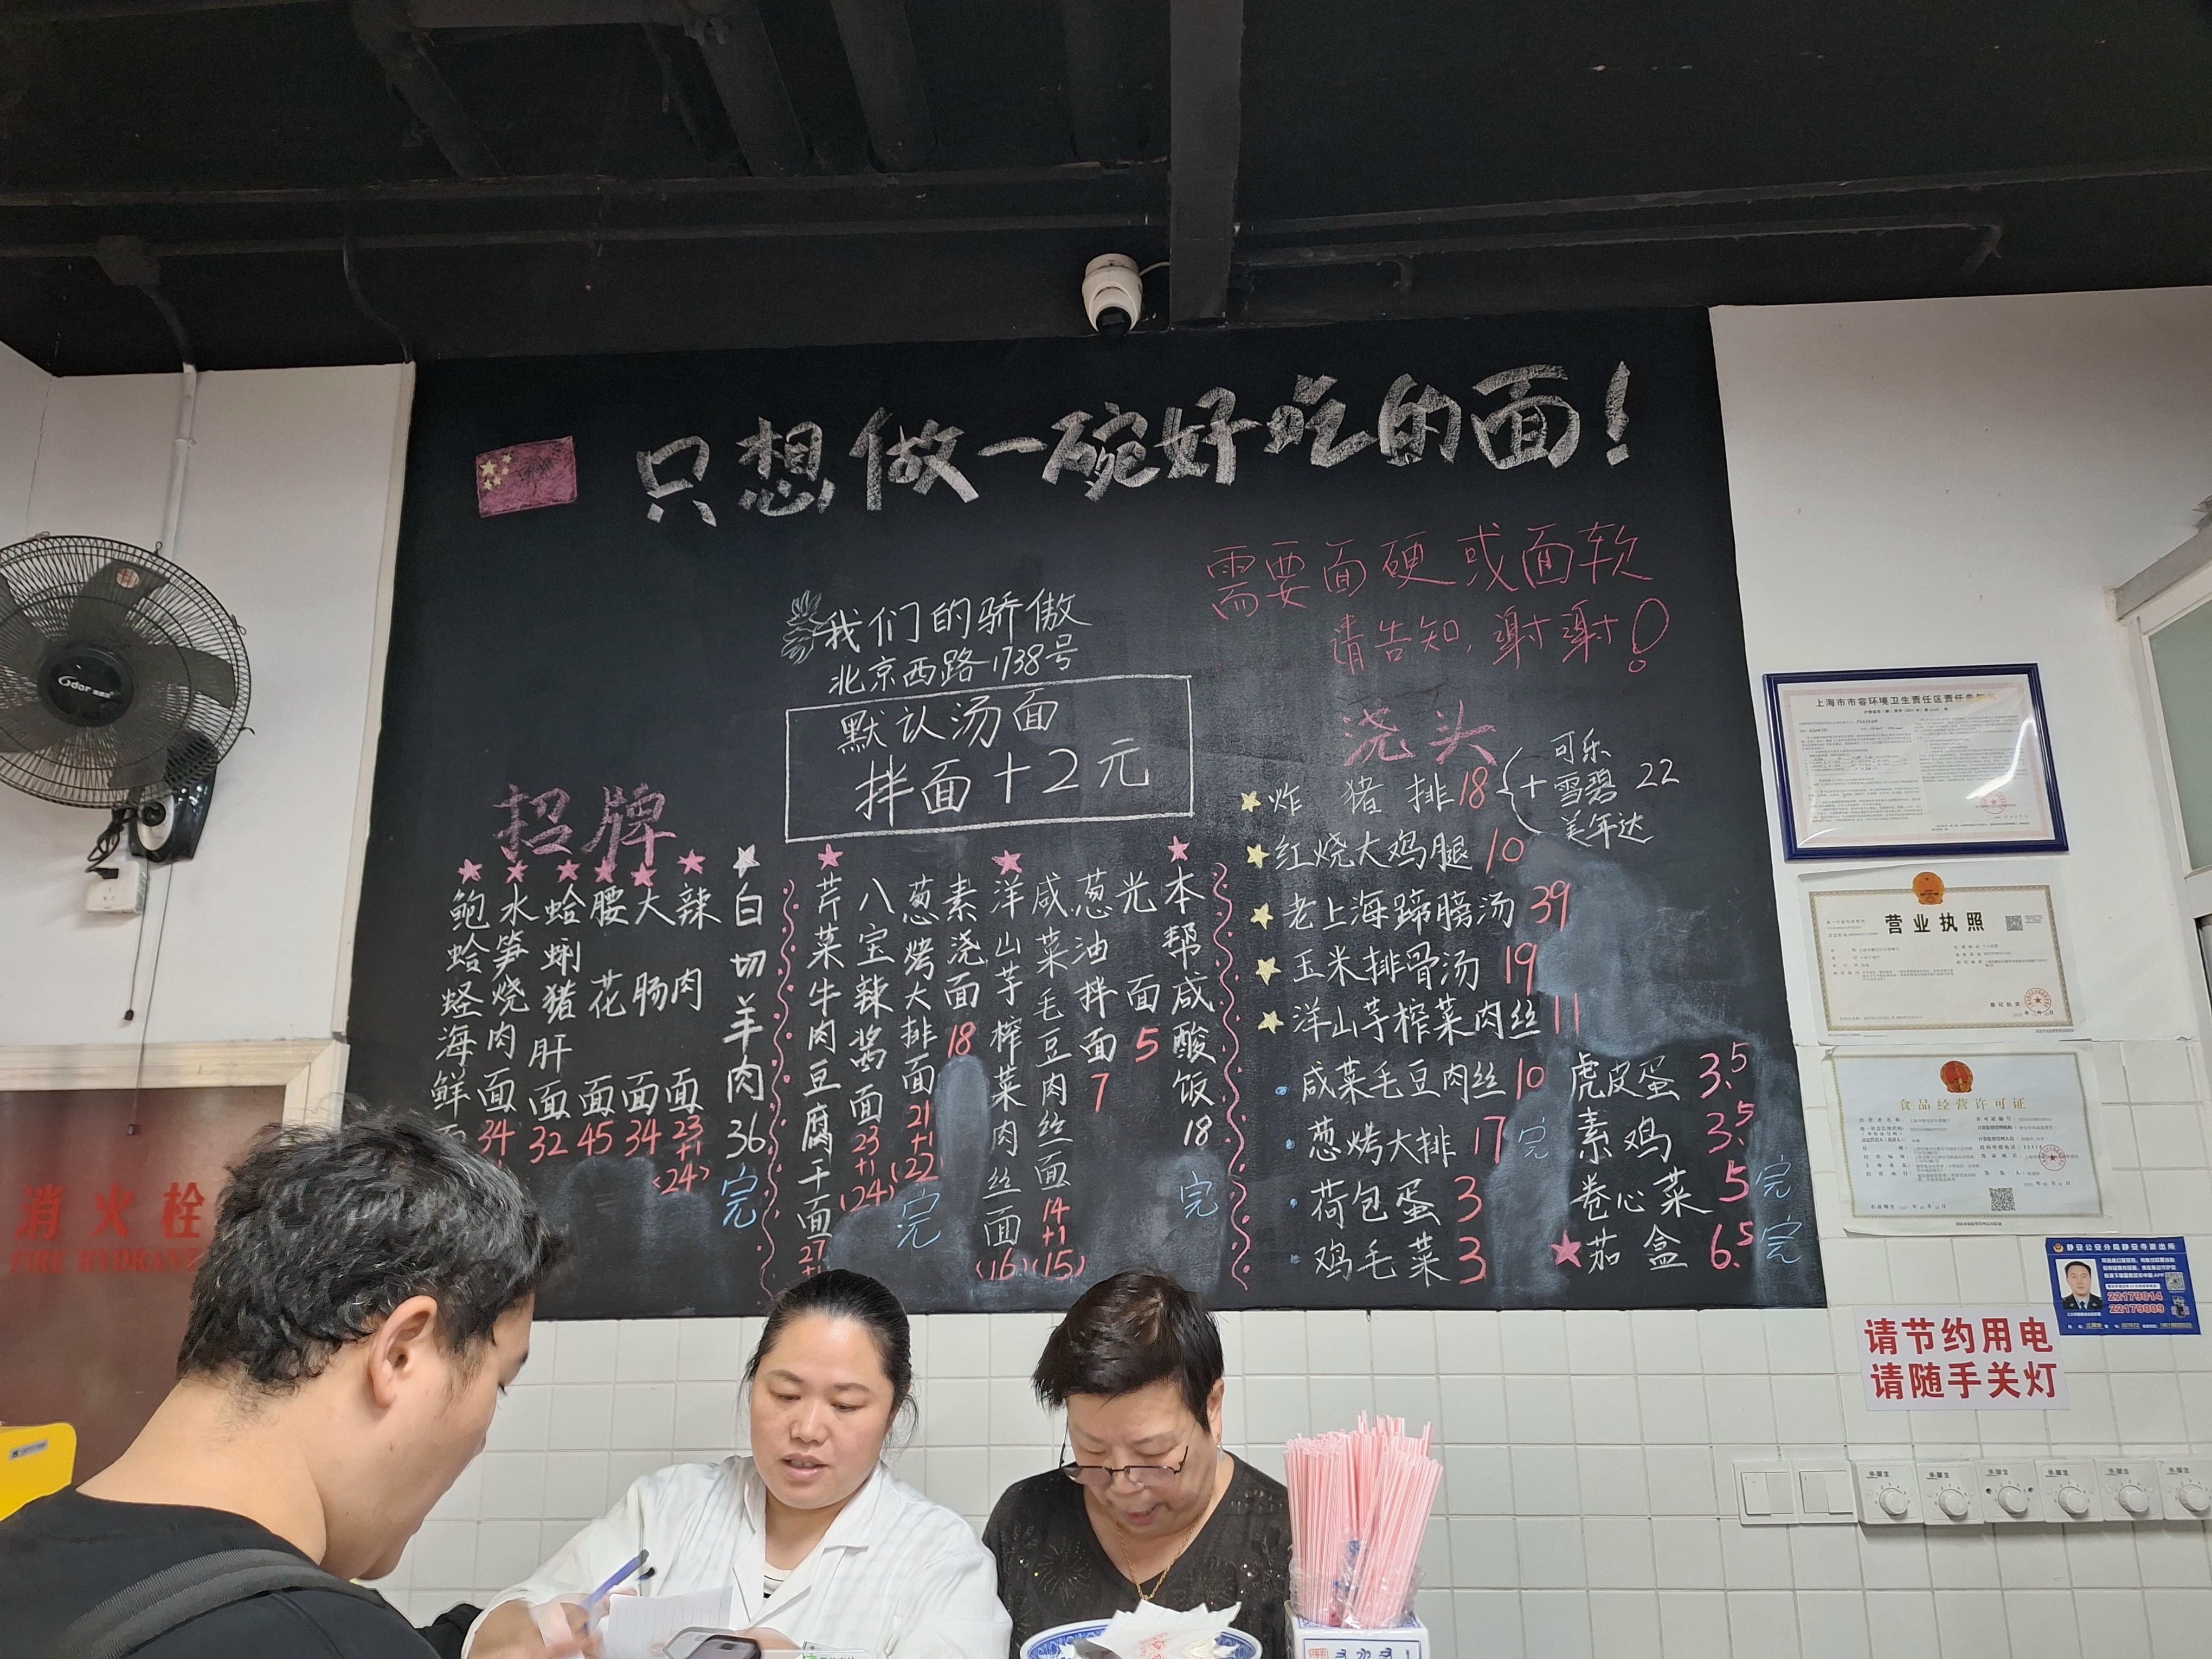 只想做一碗好吃的面!
需要面硬或面软
请告知,谢谢!
我们的骄傲
北京西路1738号
默认汤面
拌面+2元
招牌
鲍蛤蛏海鲜
水笋烧肉面 34
蛤蜊猪肝面 32
腰花面 45
大肠面 34
辣肉面 23 +1 (24)
白切羊肉 36 完
芹菜牛肉豆腐干面 27 +1
八宝辣酱面 23 +1 (24)
葱烤大排面 21 +1 (22) 完
素浇面 18
洋山芋榨菜肉丝面 (16)
咸菜毛豆肉丝面 14 +1 (15)
葱油拌面 7
光面 5
本帮咸酸饭 18 完
浇头
炸猪排 18 + 可乐 雪碧 美年达 22
红烧大鸡腿 10
老上海蹄膀汤 39
玉米排骨汤 19
洋山芋榨菜肉丝 11
咸菜毛豆肉丝 10
葱烤大排 17 完
荷包蛋 3
鸡毛菜 3
虎皮蛋 3.5
素鸡 3.5
卷心菜 5 完
茄盒 6.5 完
上海市市容环境卫生责任区责任告知书
营业执照
食品经营许可证
静安公安分局静安寺派出所
22179014
22179009
请节约用电
请随手关灯
消火栓
FIRE HYDRANT